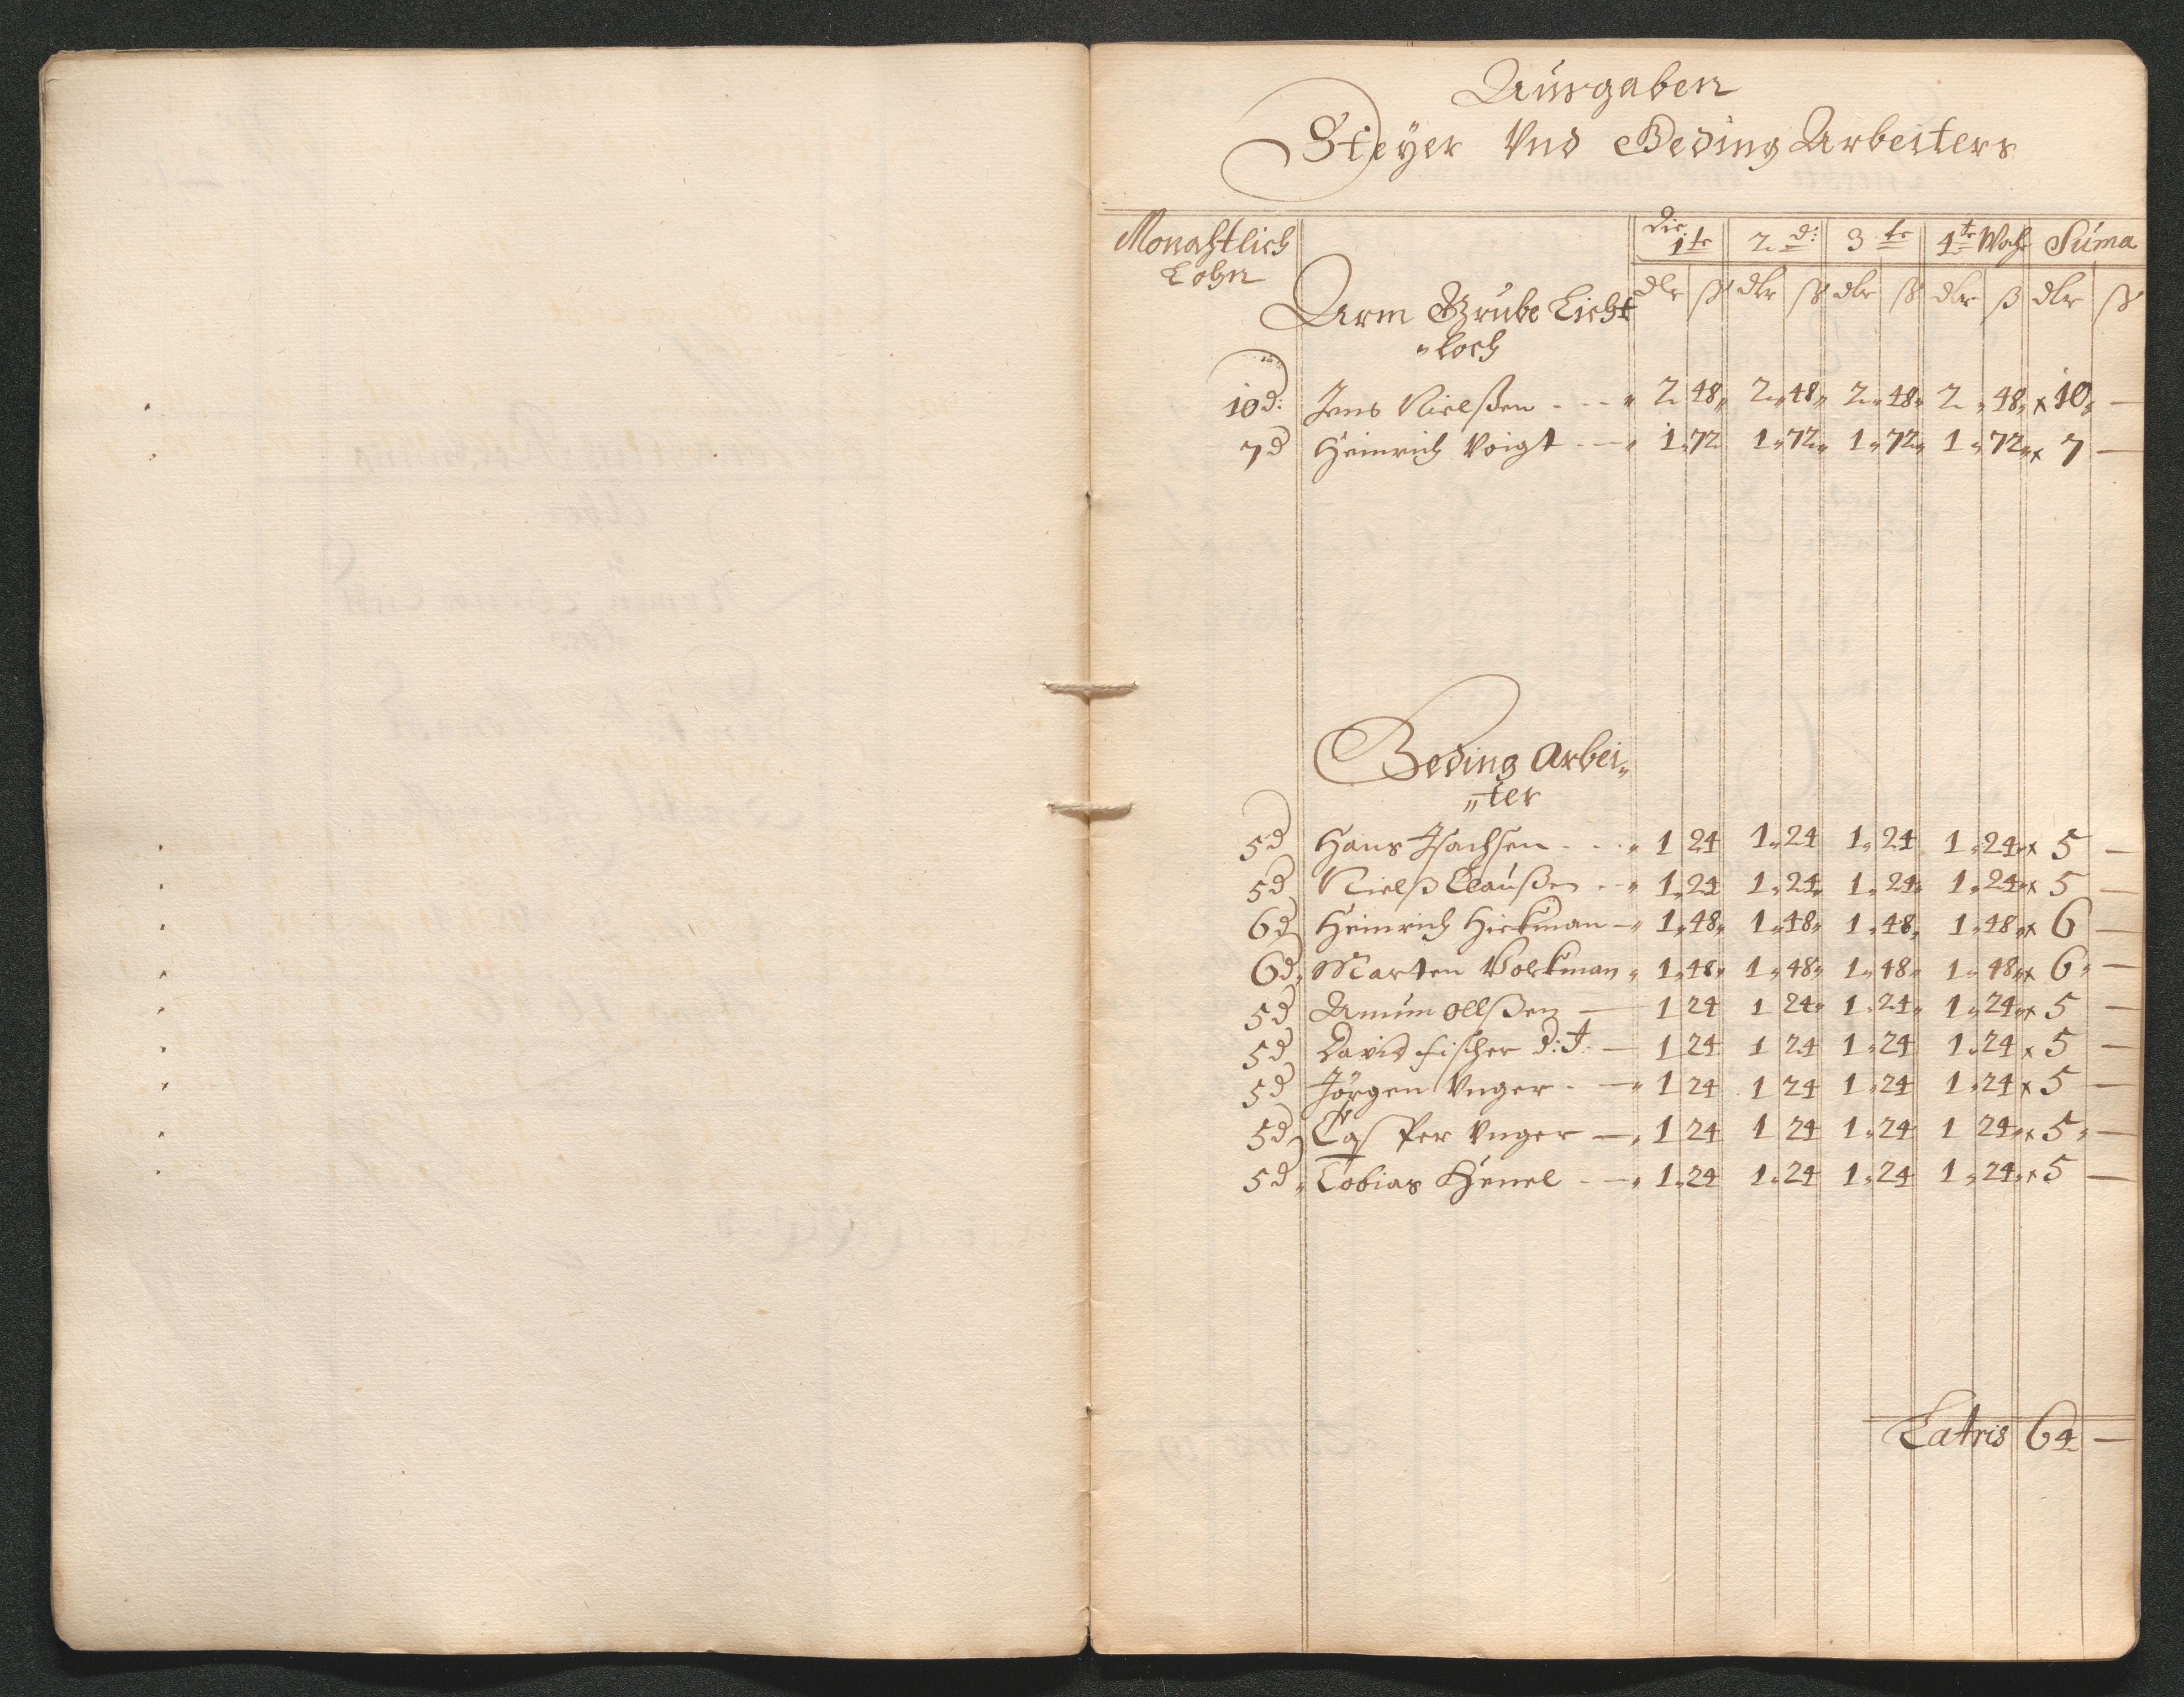 Ausgaben
Steyer Vnd Beding Arbeiters
Monahtlich Lohn | die 1te | 2 d: | 3 te | 4te Woche | Suma
dlr ß dlr ß dlr ß dlr ß dlr ß
Arm Grube Licht
"loch
10 d: Jens Nielßen - - - " 2 48 " 2 " 48 " 2 " 48 " 2 " 48 " x 10 " —
7 d Heinrich Voigt - — " 1 " 72 1 " 72 " 1 " 72 " 1 " 72 " x 7 —
Beding Arbei"
"ter
5 d Hans Isachsen - - - " 1 24 1 " 24 1 " 24 1 " 24 " x 5 —
5 d Nielß Claußen - - " 1 " 24 1 " 24 " 1 " 24 " 1 " 24 " x 5 —
6 d Heinrich Hickman — " 1 " 48 " 1 " 48 " 1 " 48 " 1 " 48 " x 6 —
6 d " Marten Volckman " 1 " 48 " 1 " 48 " 1 " 48 " 1 " 48 " x 6 " —
5 d Amum ollßen — 1 24 1 24 " 1 " 24 " 1 " 24 " x 5 —
5 d David fischer d: J: — 1 24 1 24 1 " 24 1 " 24 x 5 —
5 d Jörgen Vnger - — " 1 24 1 24 1 " 24 1 " 24 x 5 —
5 d Casper Vnger — " 1 24 1 24 1 " 24 1 24 " x 5 " —
5 d " Tobias Henel - — " 1 " 24 1 " 24 1 " 24 1 " 24 " x 5 —
Latris 64 —